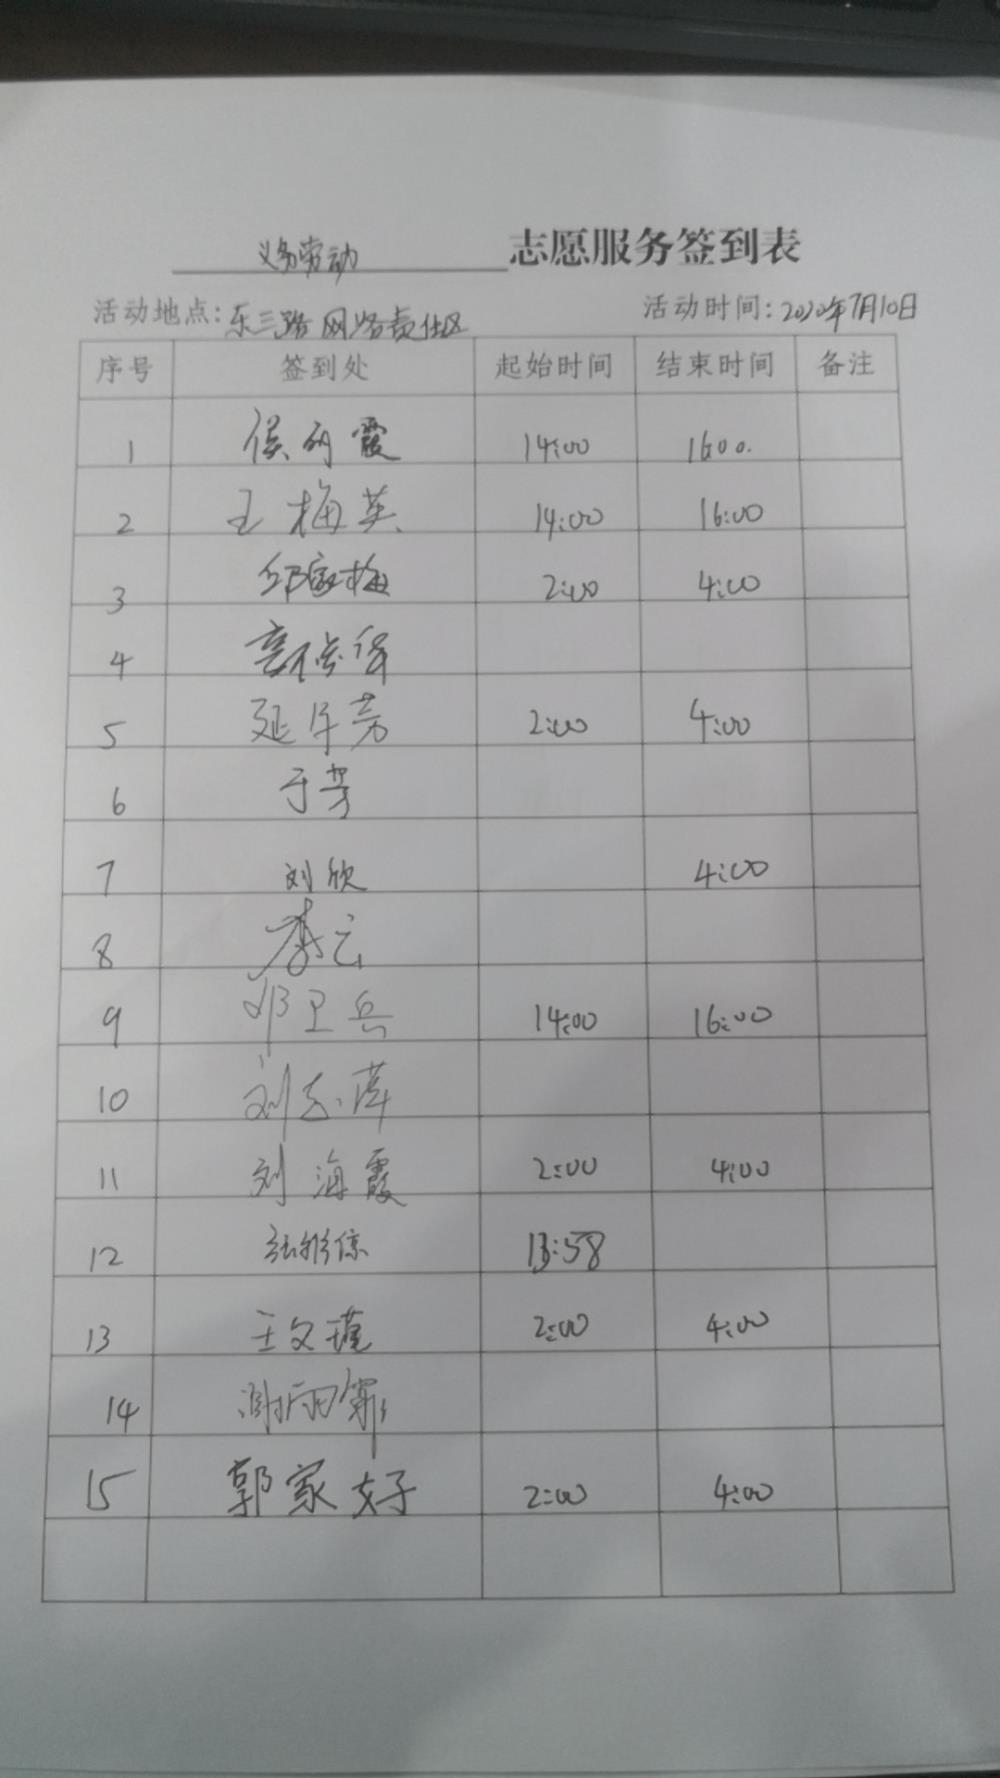 义务劳动 志愿服务签到表
活动地点：东三路网格责任区 活动时间：2020年7月10日
序号 签到处 起始时间 结束时间 备注
1 侯丽霞 14:00 16:00.
2 王梅英 14:00 16:00
3 邱家梅 2:00 4:00
4
5 延军芳 2:00 4:00
6 于芳
7 刘欣 4:00
8 李云
9 邓卫兵 14:00 16:00
10 刘志萍
11 刘海霞 2:00 4:00
12 13:58
13 王文瑾 2:00 4:00
14 谢雨
15 郭家好 2:00 4:00